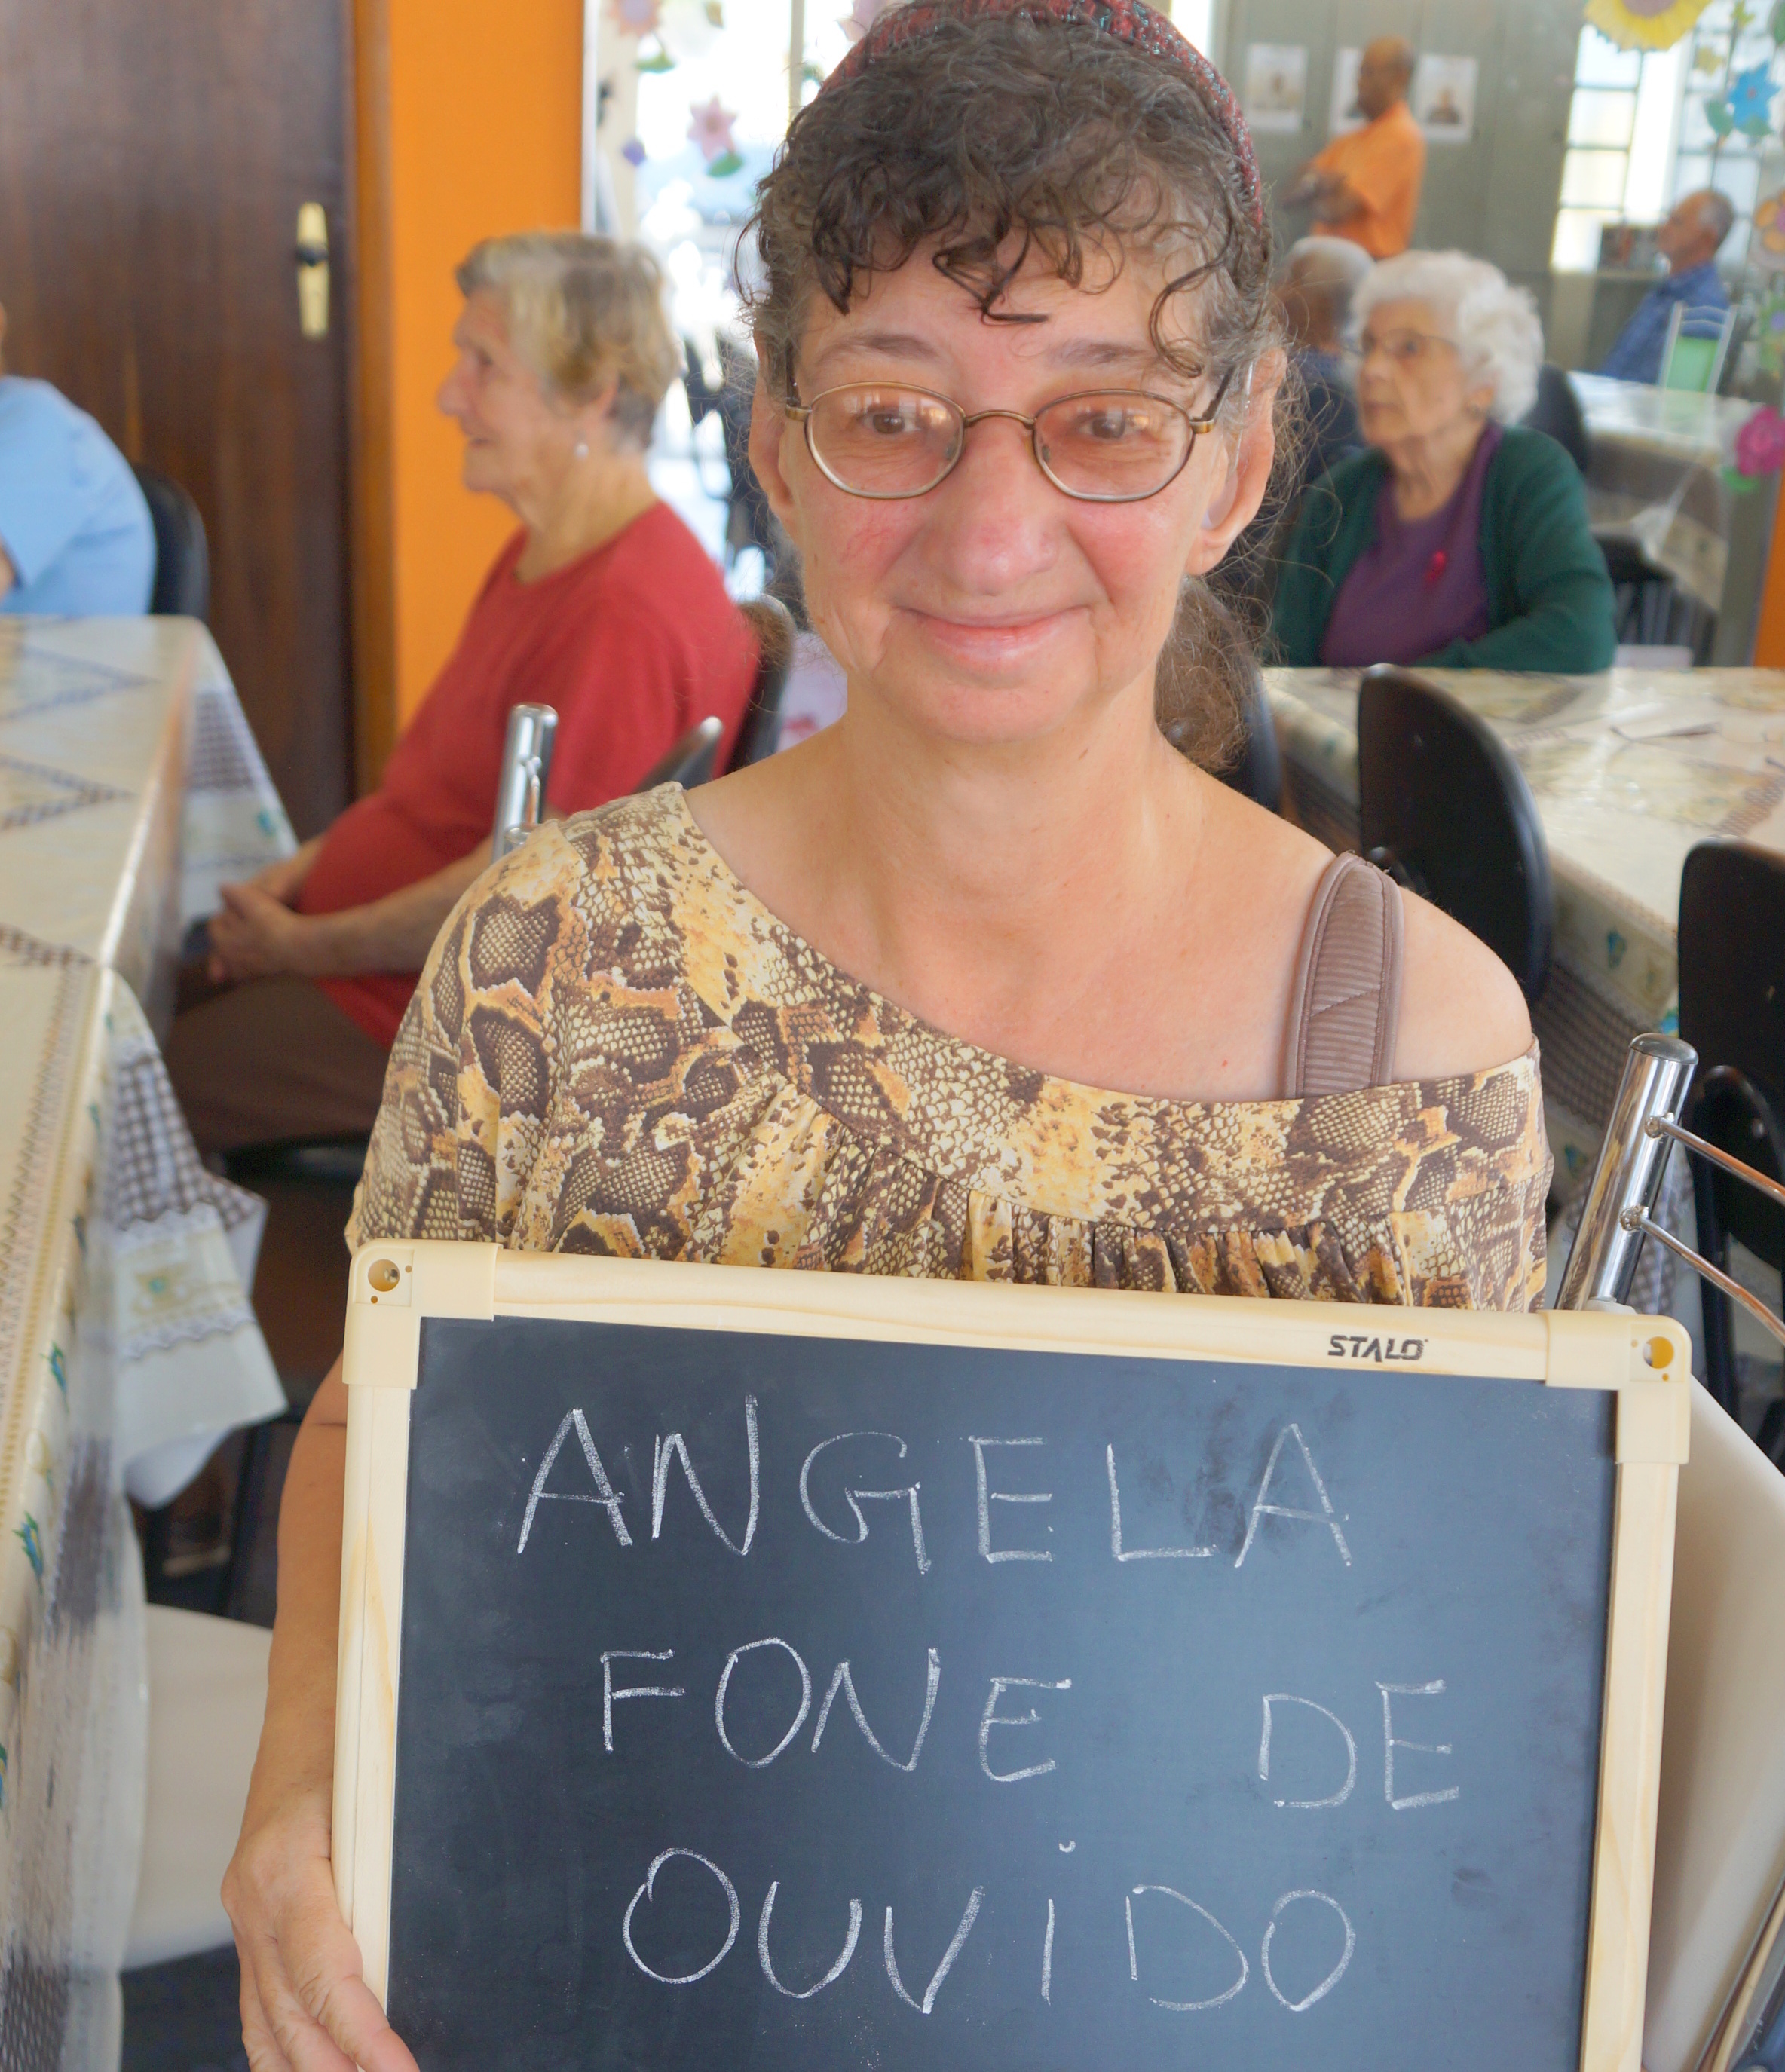 STALO
ANGELA
FONE DE
OUVIDO